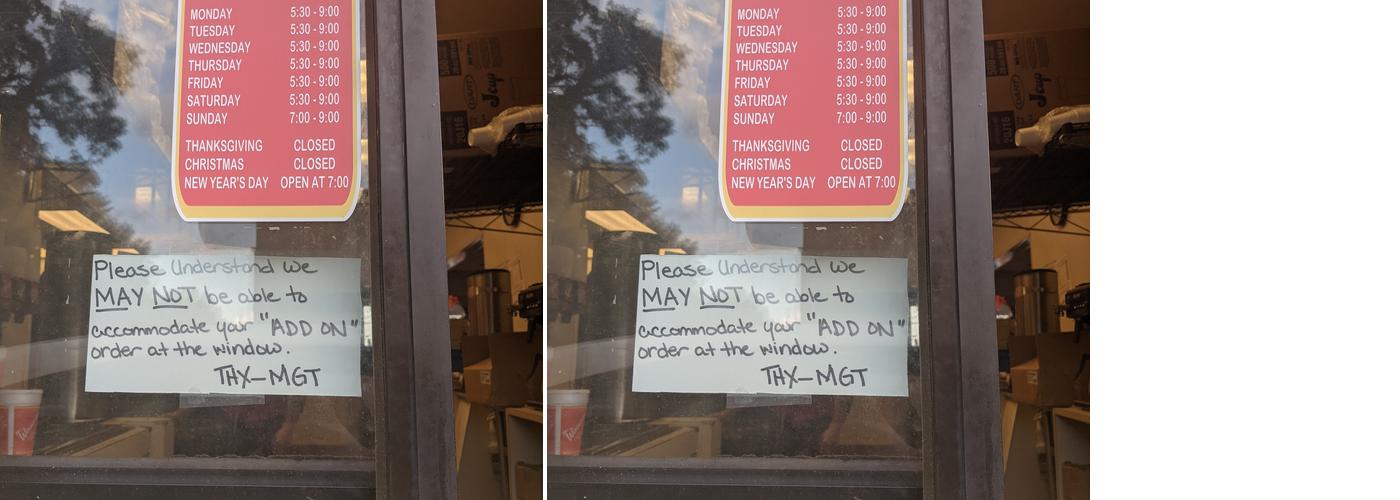 MONDAY 5:30 - 9:00
TUESDAY 5:30 - 9:00
WEDNESDAY 5:30 - 9:00
THURSDAY 5:30 - 9:00
FRIDAY 5:30 - 9:00
SATURDAY 5:30 - 9:00
SUNDAY 7:00 - 9:00
THANKSGIVING CLOSED
CHRISTMAS CLOSED
NEW YEAR'S DAY OPEN AT 7:00
Please Understand we
MAY NOT be able to
accommodate your "ADD ON"
order at the window.
THX-MGT
J cup
20J16
MONDAY 5:30 - 9:00
TUESDAY 5:30 - 9:00
WEDNESDAY 5:30 - 9:00
THURSDAY 5:30 - 9:00
FRIDAY 5:30 - 9:00
SATURDAY 5:30 - 9:00
SUNDAY 7:00 - 9:00
THANKSGIVING CLOSED
CHRISTMAS CLOSED
NEW YEAR'S DAY OPEN AT 7:00
Please Understand we
MAY NOT be able to
accommodate your "ADD ON"
order at the window.
THX-MGT
J cup
20J16